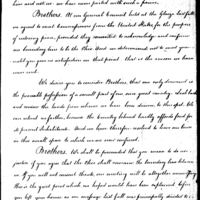 have said and we have never parted with such a power.
Brothers. At our General Council held at the Glaize last fall
we agreed to meet Commissioners from the United States for the purpose
of restoring peace, provided they consented to acknowledge and confirm
our boundary line to be the Ohio. And we determined not to meet you
until you gave us satisfaction on that point. that is the reason we have
never met.
We desire you to consider Brothers that our only demand is
the peaceable possession of a small part of our once great country. Look back
and review the lands from whence we have been driven to this spot. We
can retreat no further because the country behind hardly affords food for
its present Inhabitants. And we have therefore resolved to leave our bones
in this small space to which we are now confined.
Brothers. We shall be persuaded that you mean to do us
justice if you agree that the Ohio shall remain the boundary line between
us. If you will not consent thereto our meeting will be altogether unnecessary.
This is the great point which we hoped would have been explained before
you left your homes as our message last fall was principally directed to